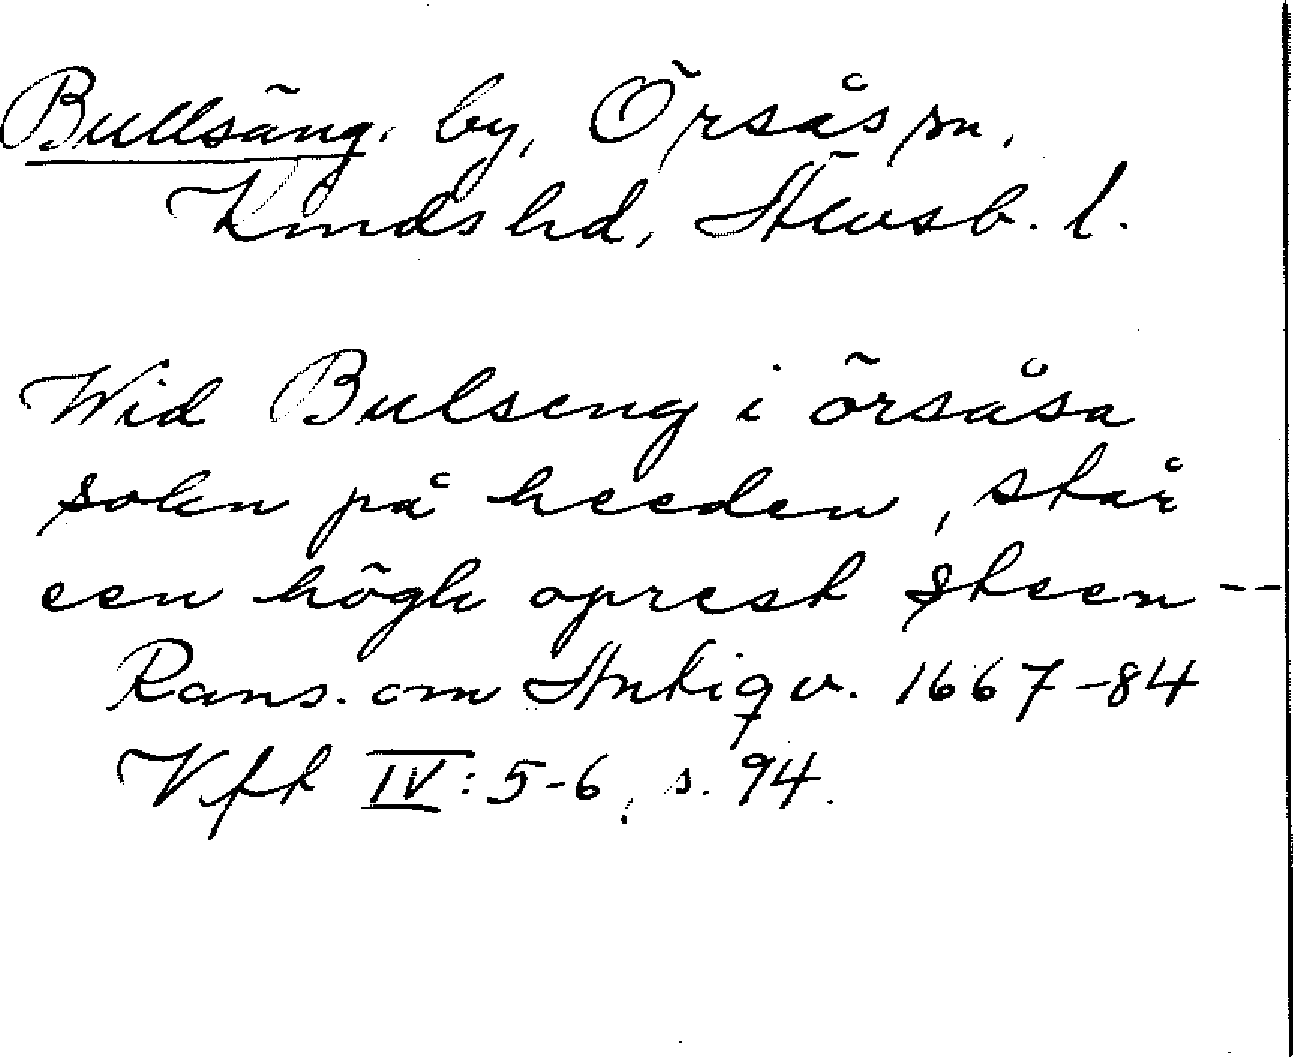 Bullsäng, by, Örsås sn,
Kinds hd, Älvsb. l.
Wid Bulseng i örsåsa
sokn på heeden, står
een högh oprest steen --
Rans. om Antiqv. 1667-84
Vft IV: 5-6, s. 94.